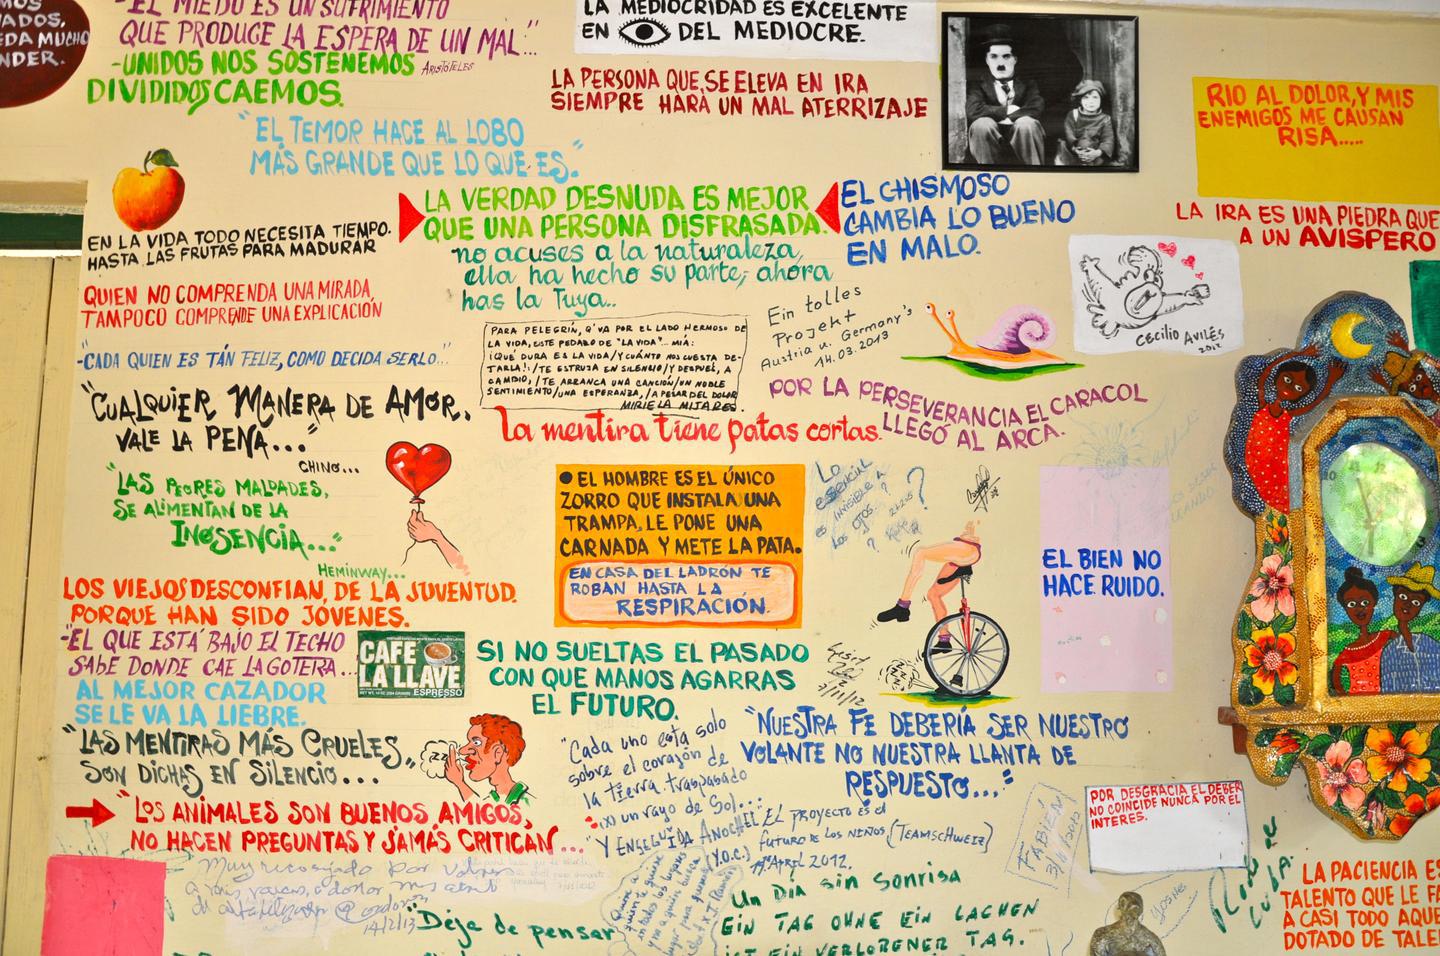 MOS
ADOS,
EDA MUCHO
NDER.
-EL MIEDO ES UN SUFRIMIENTO
QUE PRODUCE LA ESPERA DE UN MAL..."
ARISTÓTELES
-UNIDOS NOS SOSTENEMOS
DIVIDIDOS CAEMOS.
LA MEDIOCRIDAD ES EXCELENTE
EN DEL MEDIOCRE.
LA PERSONA QUE, SE ELEVA EN IRA
SIEMPRE HARÁ UN MAL ATERRIZAJE
RIO AL DOLOR, Y MIS
ENEMIGOS ME CAUSAN
RISA.....
LA IRA ES UNA PIEDRA QUE
A UN AVISPERO
"EL TEMOR HACE AL LOBO
MÁS GRANDE QUE LO QUE ES."
LA VERDAD DESNUDA ES MEJOR
QUE UNA PERSONA DISFRASADA.
EL CHISMOSO
CAMBIA LO BUENO
EN MALO.
EN LA VIDA TODO NECESITA TIEMPO.
HASTA LAS FRUTAS PARA MADURAR
no acuses a la naturaleza,
ella ha hecho su parte; ahora
has la Tuya..
QUIEN NO COMPRENDA UNA MIRADA
TAMPOCO COMPRENDE UNA EXPLICACIÓN
Ein tolles
Projekt
Austria u. Germany's
14.03.2013
CECILIO AVILÉS
2012
-CADA QUIEN ES TÁN FELIZ, COMO DECIDA SERLO..."
PARA PELEGRÍN, Q' VA POR EL LADO HERMOSO DE
LA VIDA, ESTE PEDAZO DE "LA VIDA"... MÍA:
¡QUÉ DURA ES LA VIDA/Y CUÁNTO NOS CUESTA DE-
TARLA!:/TE ESTRUJA EN SILENCIO/Y DESPUÉS, A
CAMBIO,/TE ARRANCA UNA CANCIÓN/UN NOBLE
SENTIMIENTO/UNA ESPERANZA,/A PESAR DEL DOLOR
MIRIELA MIJARES.
POR LA PERSEVERANCIA EL CARACOL
LLEGÓ AL ARCA.
"CUALQUIER MANERA DE AMOR,
VALE LA PENA..."
CHINO...
la mentira tiene patas cortas.
"LAS PEORES MALDADES,
SE ALIMENTAN DE LA
INOSENCIA..."
HEMINWAY...
• EL HOMBRE ES EL ÚNICO
ZORRO QUE INSTALA UNA
TRAMPA, LE PONE UNA
CARNADA Y METE LA PATA.
EN CASA DEL LADRÓN TE
ROBAN HASTA LA
RESPIRACIÓN.
LO
ESENCIAL
ES INVISIBLE A
LOS OJOS
EL BIEN NO
HACE RUIDO.
LOS VIEJOS DESCONFIAN, DE LA JUVENTUD.
PORQUE HAN SIDO JÓVENES.
-EL QUE ESTÁ BAJO EL TECHO
SABE DONDE CAE LA GOTERA...
CAFE
LA LLAVE
ESPRESSO
SI NO SUELTAS EL PASADO
CON QUE MANOS AGARRAS
EL FUTURO.
AL MEJOR CAZADOR
SE LE VA LA LIEBRE.
"LAS MENTIRAS MÁS CRUELES,
SON DICHAS EN SILENCIO...
"Cada uno está solo
sobre el corazón de
la tierra traspasado
(x) un rayo de Sol...
Y ENSEGUIDA ANOCHECE"
(Y.O.C.)
"NUESTRA FE DEBERÍA SER NUESTRO
VOLANTE NO NUESTRA LLANTA DE
RESPUESTO..."
"LOS ANIMALES SON BUENOS AMIGOS,
NO HACEN PREGUNTAS Y JAMÁS CRITICAN..."
EL PROYECTO ES el
FUTURO DE LOS NIÑOS (TEAMSCHWEIZ)
19. APRIL 2012.
FABIÉN
POR DESGRACIA EL DEBER
NO COINCIDE NUNCA POR EL
INTERES.
Muy recosijado por
14/2/13
"Deja de pensar
Un Día sin Sonrisa
EIN TAG OHNE EIN LACHEN
IST EIN VERLORENER TAG.
YOSNEL
LA PACIENCIA ES
TALENTO QUE LE FA
A CASI TODO AQUE
DOTADO DE TALE